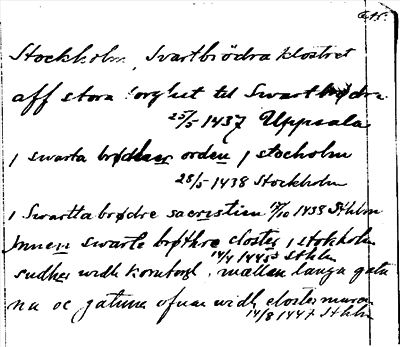 Stockholm, Svartbrödraklostret
aff stora torghet til Swartbrødra
25/5 1437 Uppsala
i swarta brødher orden i stocholm
28/5 1438 Stockholm
i Swartta brødre sacristien 17/10 1438 Sthlm
Jnnen swarte brøthre closter i stokholm
14/4 1445 Sthlm
sudher widh korntorgh, mællan langa gatu
na oc gatune ofuan widh clostermuren
14/8 1447 Sthlm